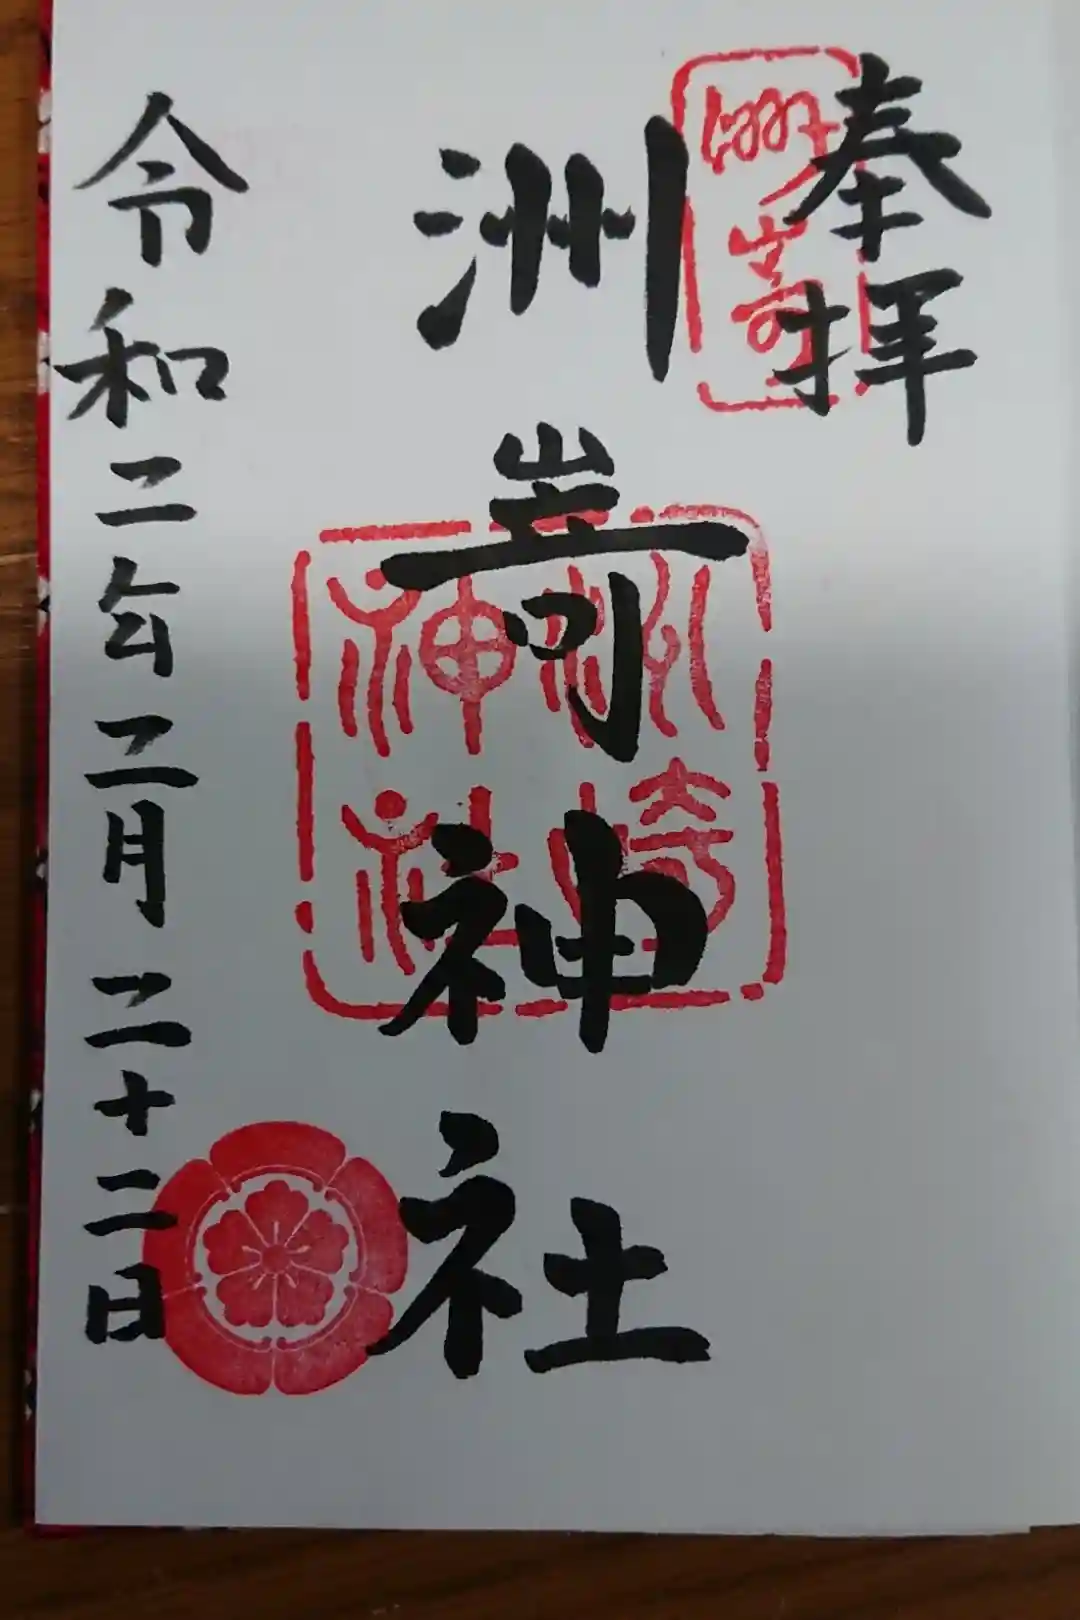 奉拝
洲嵜
洲嵜神社
洲崎
神社
令和二年二月二十二日